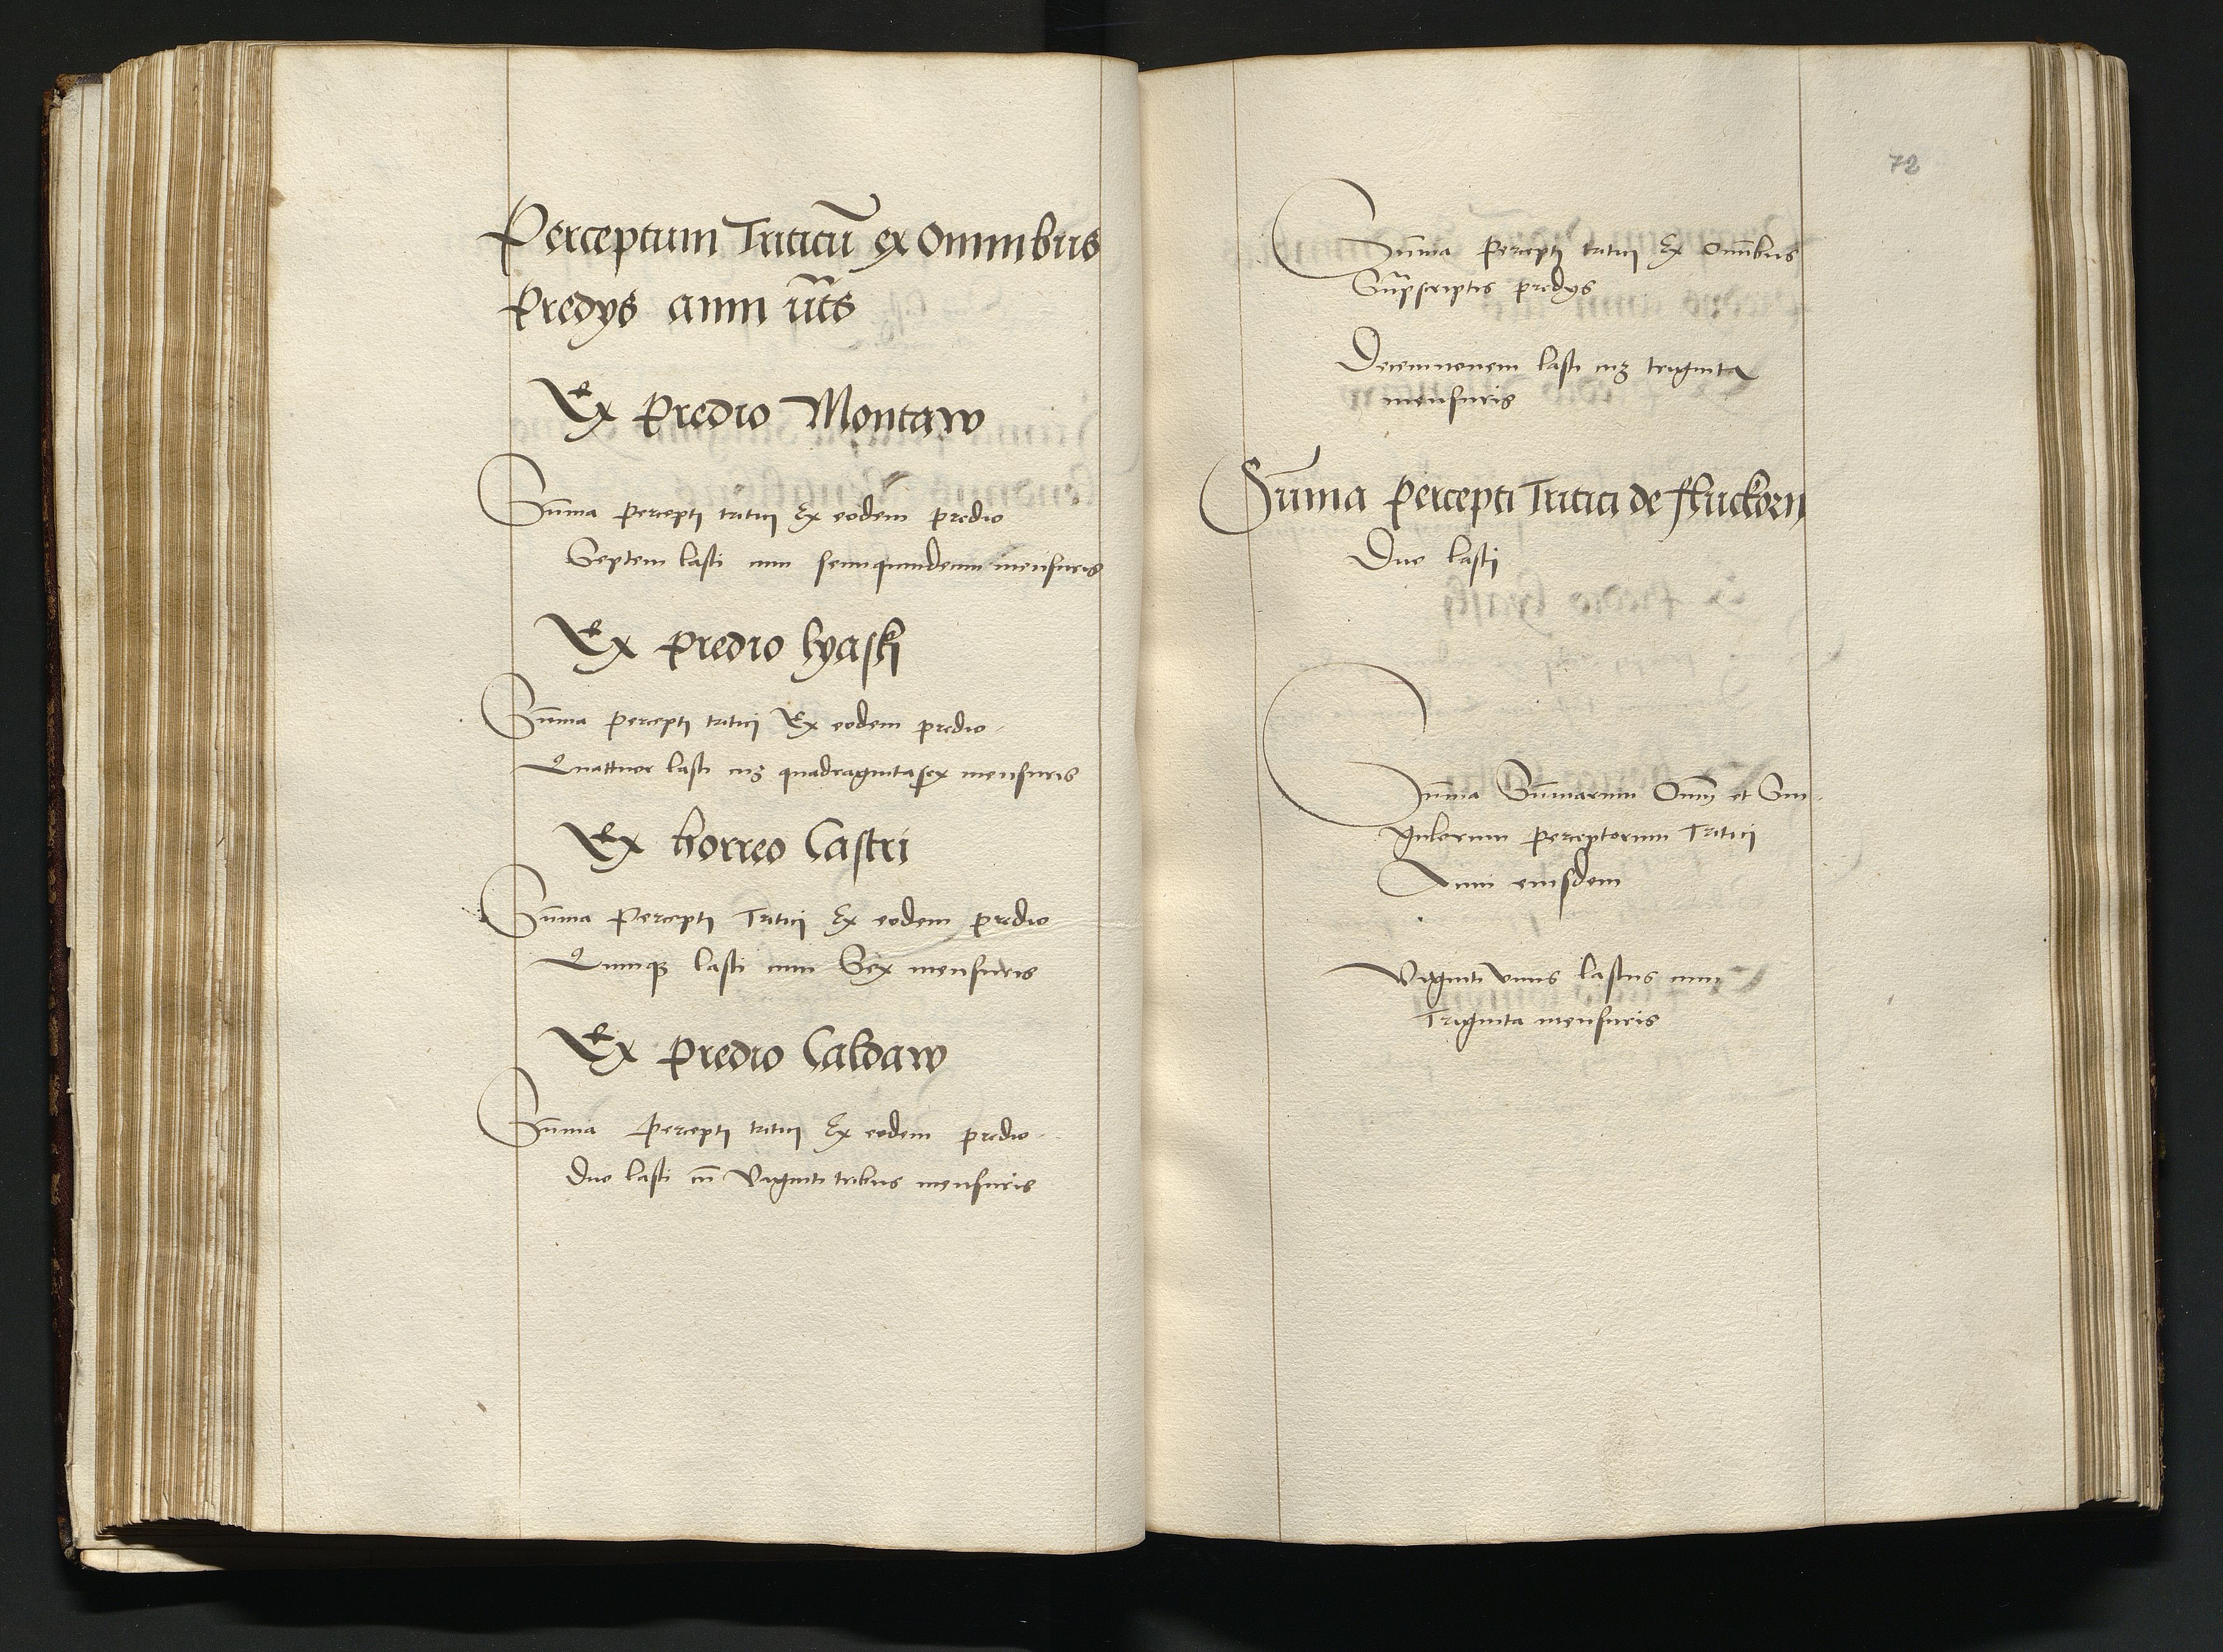 Perceptum Triticū ex Omnibus
Predÿs anni ut̄s
Ex Predio Montaw
Sūma percepti tritici Ex eodem predio
Septem lasti cum semiquindecim mensuris
Ex predio lyaski
Sūma percepti tritici Ex eodem predio
Quattuor lasti cuʒ quadragintasex mensuris
Ex horreo Castri
Sūma Percepti Tritici Ex eodem predio
Quinqʒ lasti cum Sex mensuris
Ex predio Caldaw
Sūma Percepti tritici Ex eodem predio
Duo lasti cū Viginti tribus mensuris
72
Sūma Percepti tritici Ex Om̄ibus
Sup̄scriptis predÿs
Decemnouem lasti cuʒ triginta
mensuris
Sūma Percepti Tritici de fluckorn
Duo lasti
Sūma Sūmarum Om̄ et Sin
gulorum Perceptorum Tritici
Anni eiusdem
Viginti vnus lastus cum
Triginta mensuris